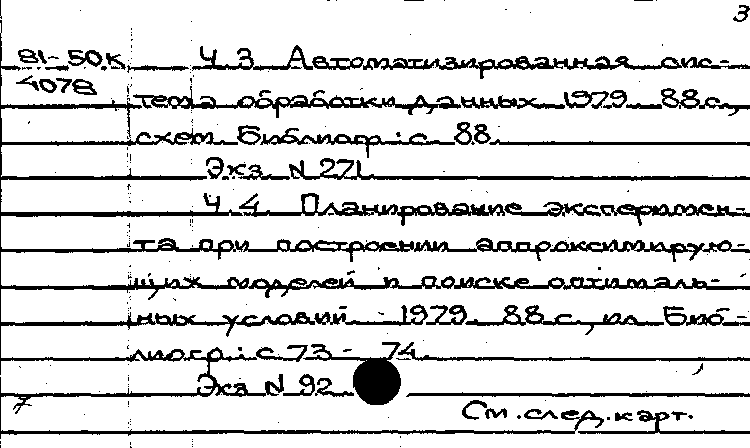 3
81-50К Ч.3. Автоматизированная сис-
4078
тема обработки данных. 1979. 88 с.,
схем. Библиогр.: с. 88.
Экз. N 271.
Ч.4. Планирование эксперимен-
та при построении аппроксимирую-
щих моделей и поиске оптималь-
ных условий. - 1979. 88 с., ил. Биб-
лиогр.: с. 73 - 74.
Экз N 92
7
См. след. карт.